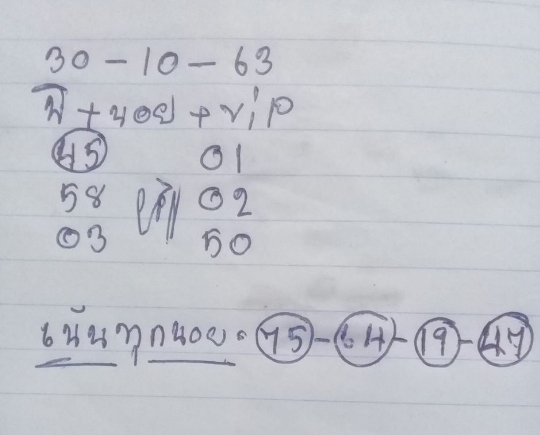 30 - 10 - 63
พี + นอย + vip
45 01
58 02
03 50
เน้นทุกนอย. 75 - 64 - 19 - 47